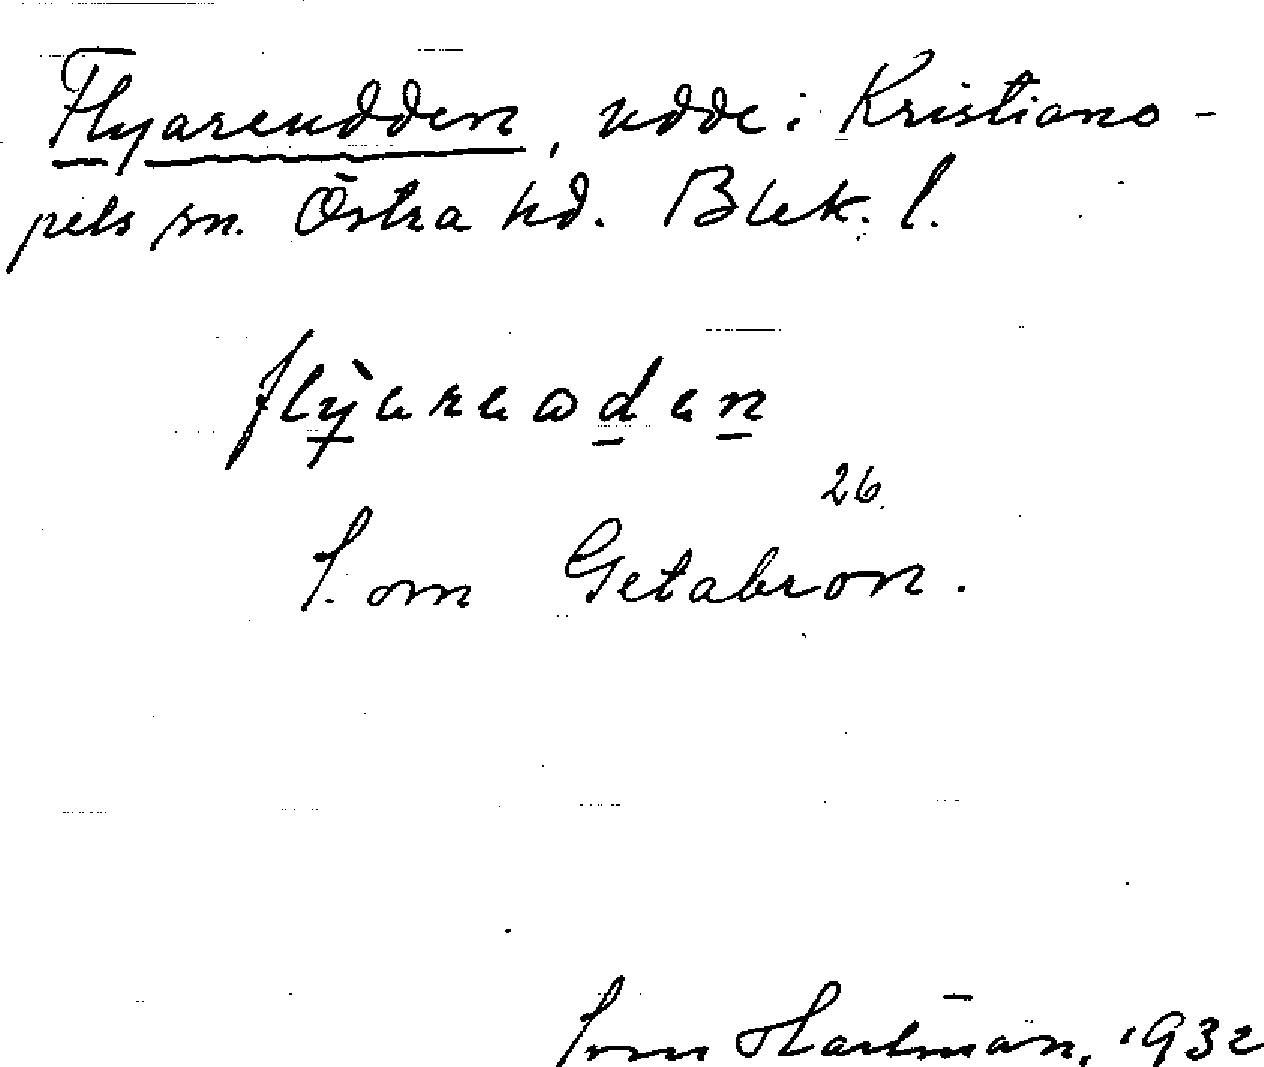 Flyareudden, udde i Kristiano-
pels sn. Östra hd. Blek. l.
flỳaraodan
26.
S. om Getabron.
Sven Hartman, 1932